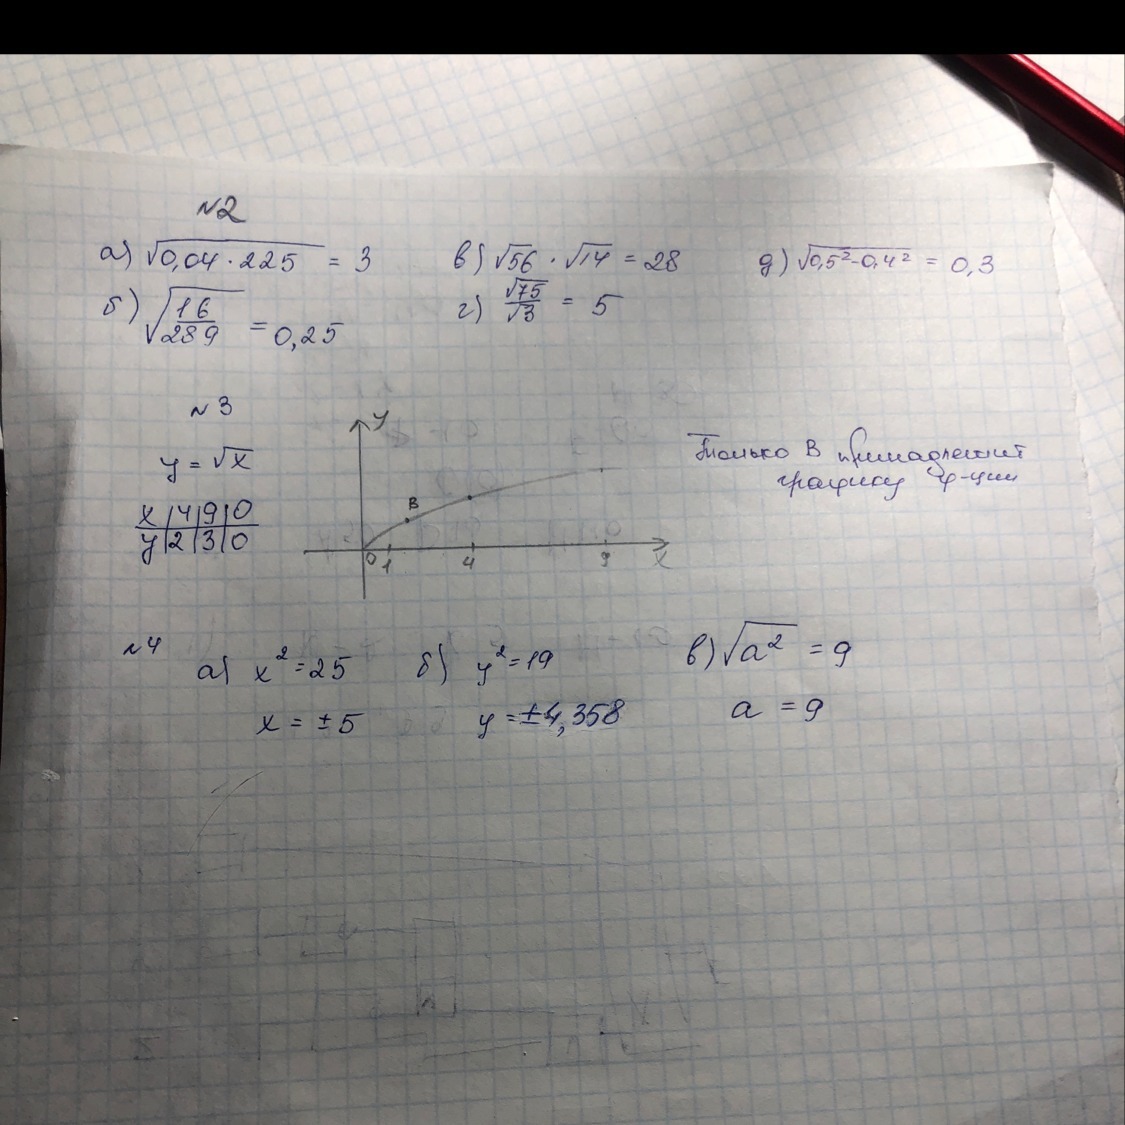 №2
а) √0,04 · 225 = 3 в) √56 · √14 = 28 д) √0,5² - 0,4² = 0,3
б) √16/289 = 0,25 г) √75/√3 = 5
№3
y = √x
x | 4 | 9 | 0
y | 2 | 3 | 0
y
B
0 1 4 9 x
Только В принадлежит
графику ф-ции
№4 а) x² = 25 б) y² = 19 в) √a² = 9
x = ± 5 y = ±4,358 a = 9